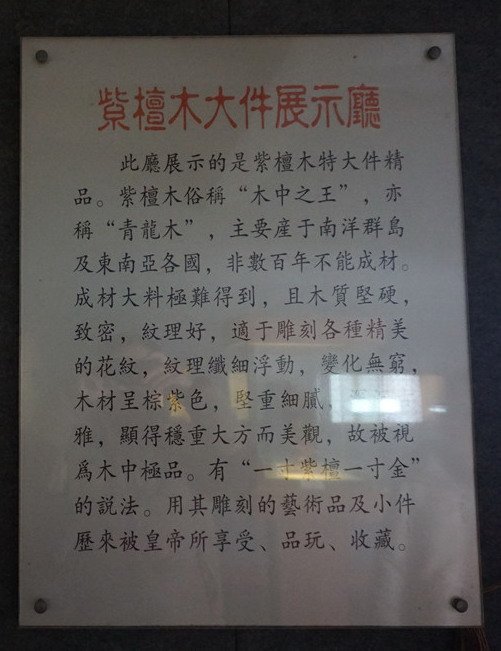 紫檀木大件展示廳
此廳展示的是紫檀木特大件精
品。紫檀木俗稱“木中之王”，亦
稱“青龍木”，主要產于南洋群島
及東南亞各國，非數百年不能成材。
成材大料極難得到，且木質堅硬，
致密，紋理好，適于雕刻各種精美
的花紋，紋理纖細浮動，變化無窮，
木材呈棕紫色，堅重細膩，
雅，顯得穩重大方而美觀，故被視
爲木中極品。有“一寸紫檀一寸金”
的說法。用其雕刻的藝術品及小件
歷來被皇帝所享受、品玩、收藏。